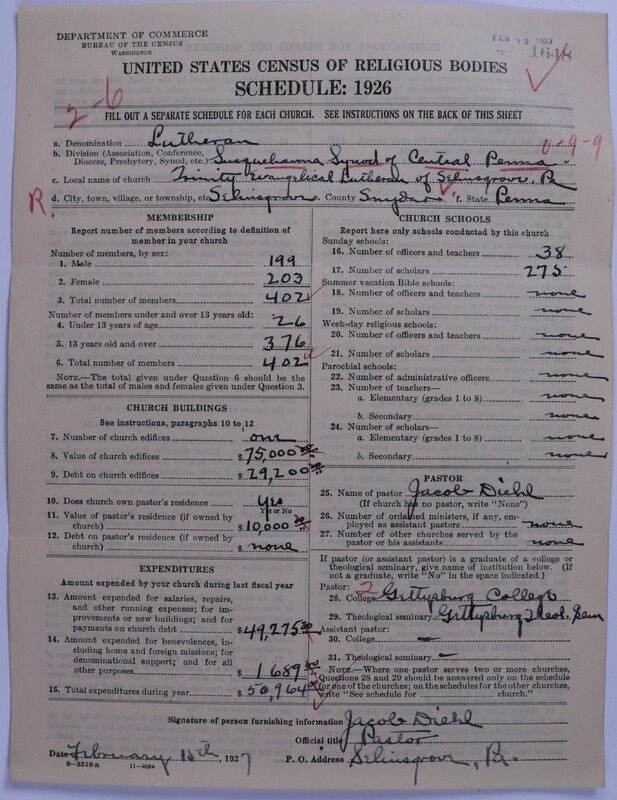 DEPARTMENT OF COMMERCE
BUREAU OF THE CENSUS
WASHINGTON
FEB 19 1927
1648
UNITED STATES CENSUS OF RELIGIOUS BODIES
SCHEDULE: 1926
2-6
FILL OUT A SEPARATE SCHEDULE FOR EACH CHURCH. SEE INSTRUCTIONS ON THE BACK OF THIS SHEET
a. Denomination Lutheran
0-9-9
b. Division (Association, Conference, Diocese, Presbytery, Synod, etc.) Susquehanna Synod of Central Penna
c. Local name of church Trinity Evangelical Lutheran of Selinsgrove, Pa
R.
d. City, town, village, or township, etc. Selinsgrove e. County Snyder f. State Penna
MEMBERSHIP
Report number of members according to definition of
member in your church
Number of members, by sex:
1. Male 199
2. Female 203
3. Total number of members 402
Number of members under and over 13 years old:
4. Under 13 years of age 26
5. 13 years old and over 376
6. Total number of members 402
NOTE.—The total given under Question 6 should be the
same as the total of males and females given under Question 3.
CHURCH BUILDINGS
See instructions, paragraphs 10 to 12
7. Number of church edifices one
8. Value of church edifices $75,000 00
9. Debt on church edifices $29,200 00
10. Does church own pastor's residence Yes
Yes or No
11. Value of pastor's residence (if owned by
church) $10,000 00
12. Debt on pastor's residence (if owned by
church) $ none
EXPENDITURES
Amount expended by your church during last fiscal year
13. Amount expended for salaries, repairs,
and other running expenses; for im-
provements or new buildings; and for
payments on church debt $49,275 00
14. Amount expended for benevolences, in-
cluding home and foreign missions; for
denominational support; and for all
other purposes $1689 00
15. Total expenditures during year $50,964 00
CHURCH SCHOOLS
Report here only schools conducted by this church
Sunday schools:
16. Number of officers and teachers 38
17. Number of scholars 275
Summer vacation Bible schools:
18. Number of officers and teachers none
19. Number of scholars none
Week-day religious schools:
20. Number of officers and teachers none
21. Number of scholars none
Parochial schools:
22. Number of administrative officers none
23. Number of teachers—
a. Elementary (grades 1 to 8) none
b. Secondary none
24. Number of scholars—
a. Elementary (grades 1 to 8) none
b. Secondary none
PASTOR
25. Name of pastor Jacob Diehl
(If church has no pastor, write "None")
26. Number of ordained ministers, if any, em-
ployed as assistant pastors none
27. Number of other churches served by the
pastor or his assistants none
If pastor (or assistant pastor) is a graduate of a college or
theological seminary, give name of institution below. (If
not a graduate, write "No" in the space indicated.)
Pastor: 2
28. College Gettysburg College
29. Theological seminary Gettysburg Theol. Sem
Assistant pastor:
30. College —
31. Theological seminary —
NOTE.—Where one pastor serves two or more churches,
Questions 28 and 29 should be answered only on the schedule
for one of the churches; on the schedules for the other churches,
write "See schedule for ........ church."
Signature of person furnishing information Jacob Diehl
Official title Pastor
Date February 15th, 1927 P. O. Address Selinsgrove, Pa.
8—5518a 11—9054